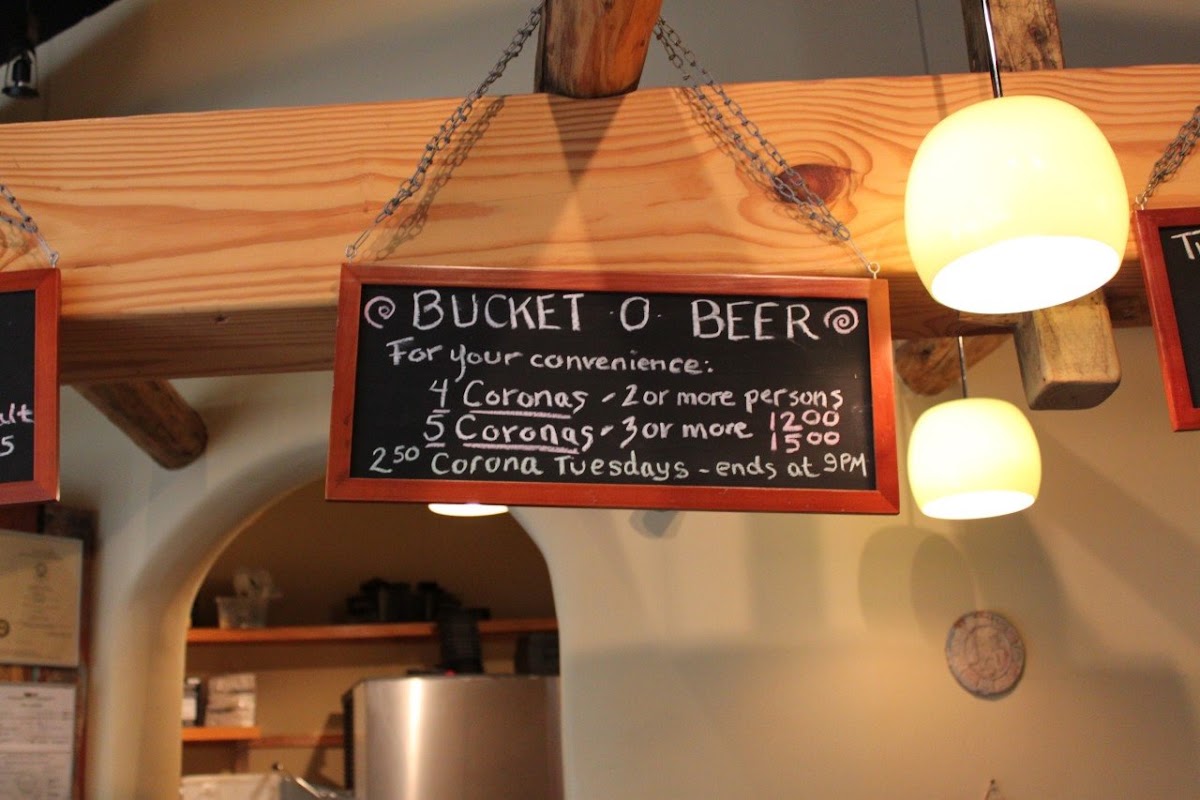 BUCKET · O · BEER
For your convenience:
4 Coronas - 2 or more persons
12.00
5 Coronas - 3 or more
15.00
2.50 Corona Tuesdays - ends at 9PM
alt
5
T